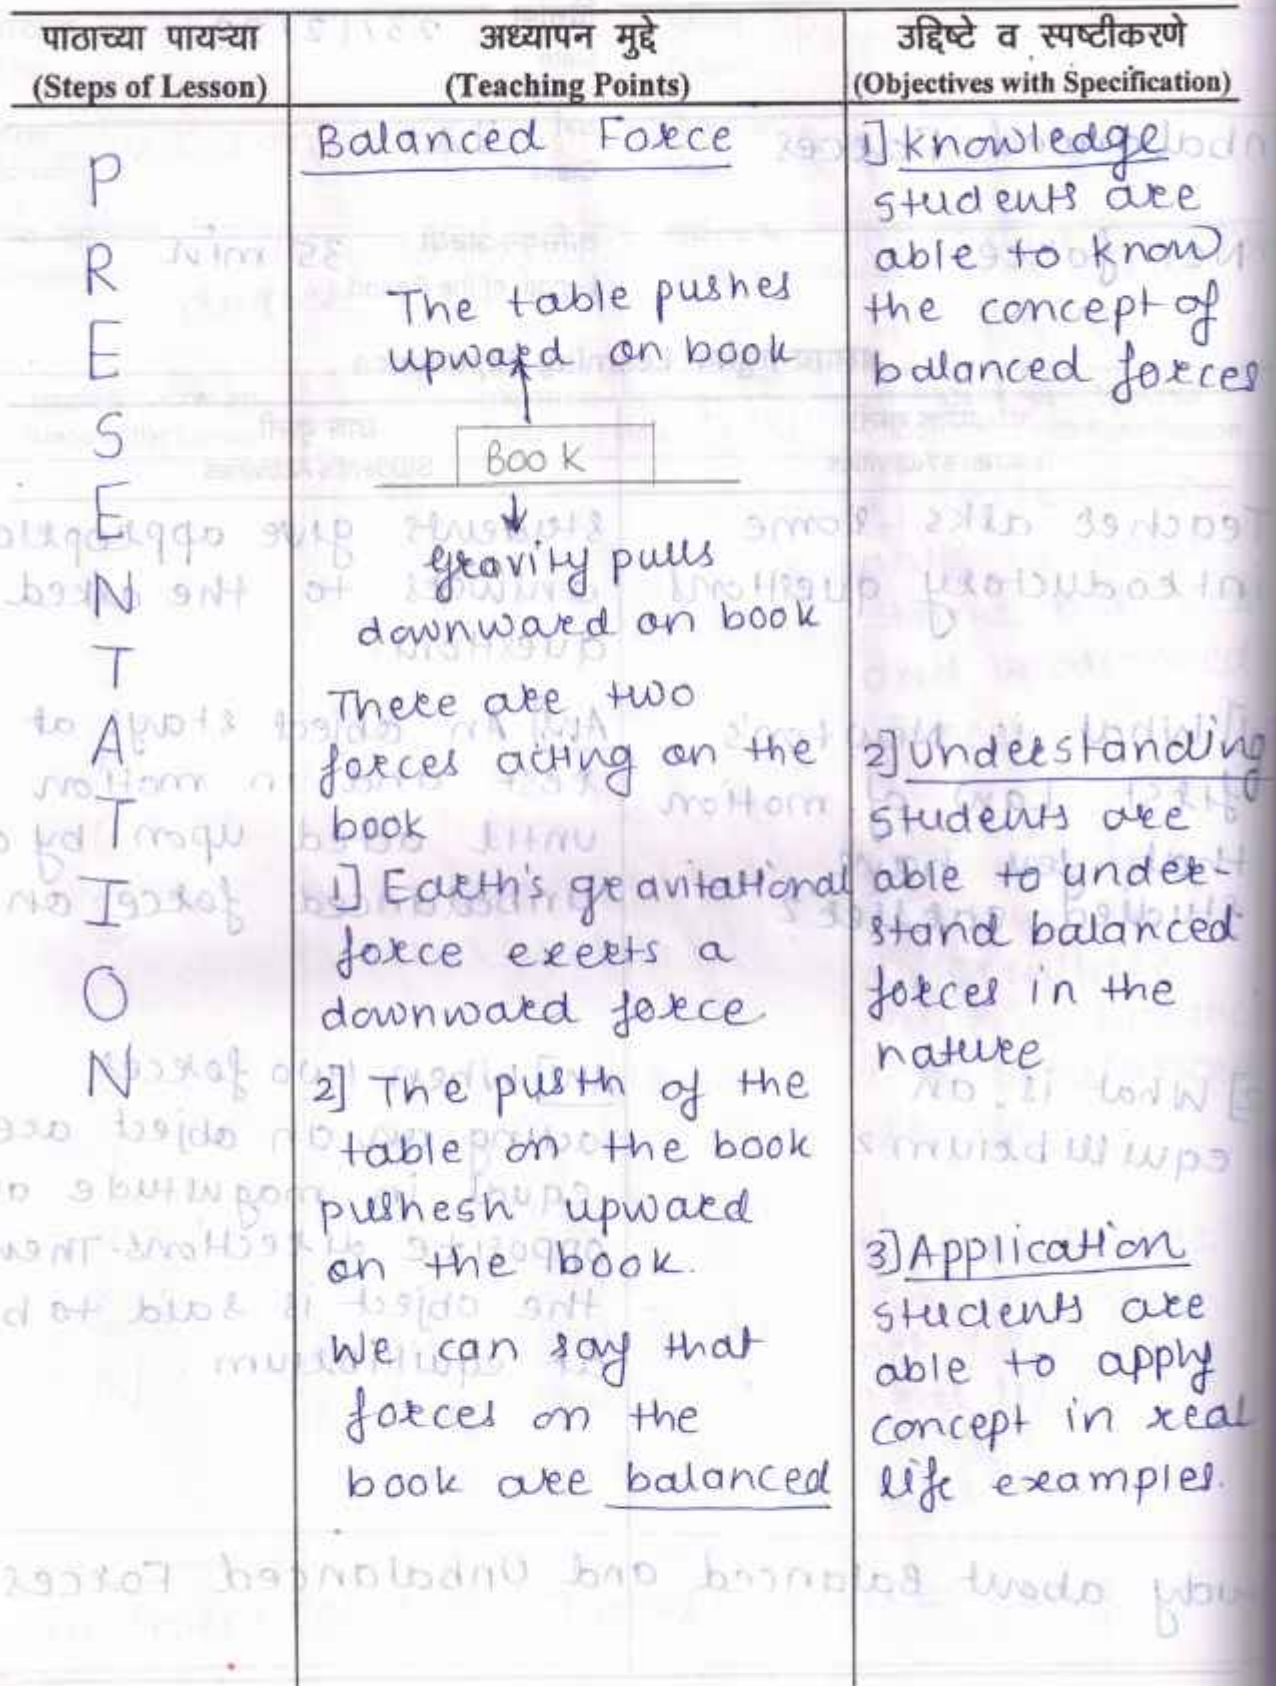 पाठाच्या पायऱ्या
(Steps of Lesson)
अध्यापन मुद्दे
(Teaching Points)
उद्दिष्टे व स्पष्टीकरणे
(Objectives with Specification)
PRESENTATION
Balanced Force
The table pushes
upward on book
BOOK
gravity pulls
downward on book
There are two
forces acting on the
book
1] Earth's gravitational
force exerts a
downward force
2] The pusth of the
table on the book
pushesh upward
on the book.
We can say that
forces on the
book are balanced
1] Knowledge
students are
able to know
the concept of
balanced forces
2] Understanding
students are
able to under-
stand balanced
forces in the
nature
3] Application
students are
able to apply
concept in real
life examples.